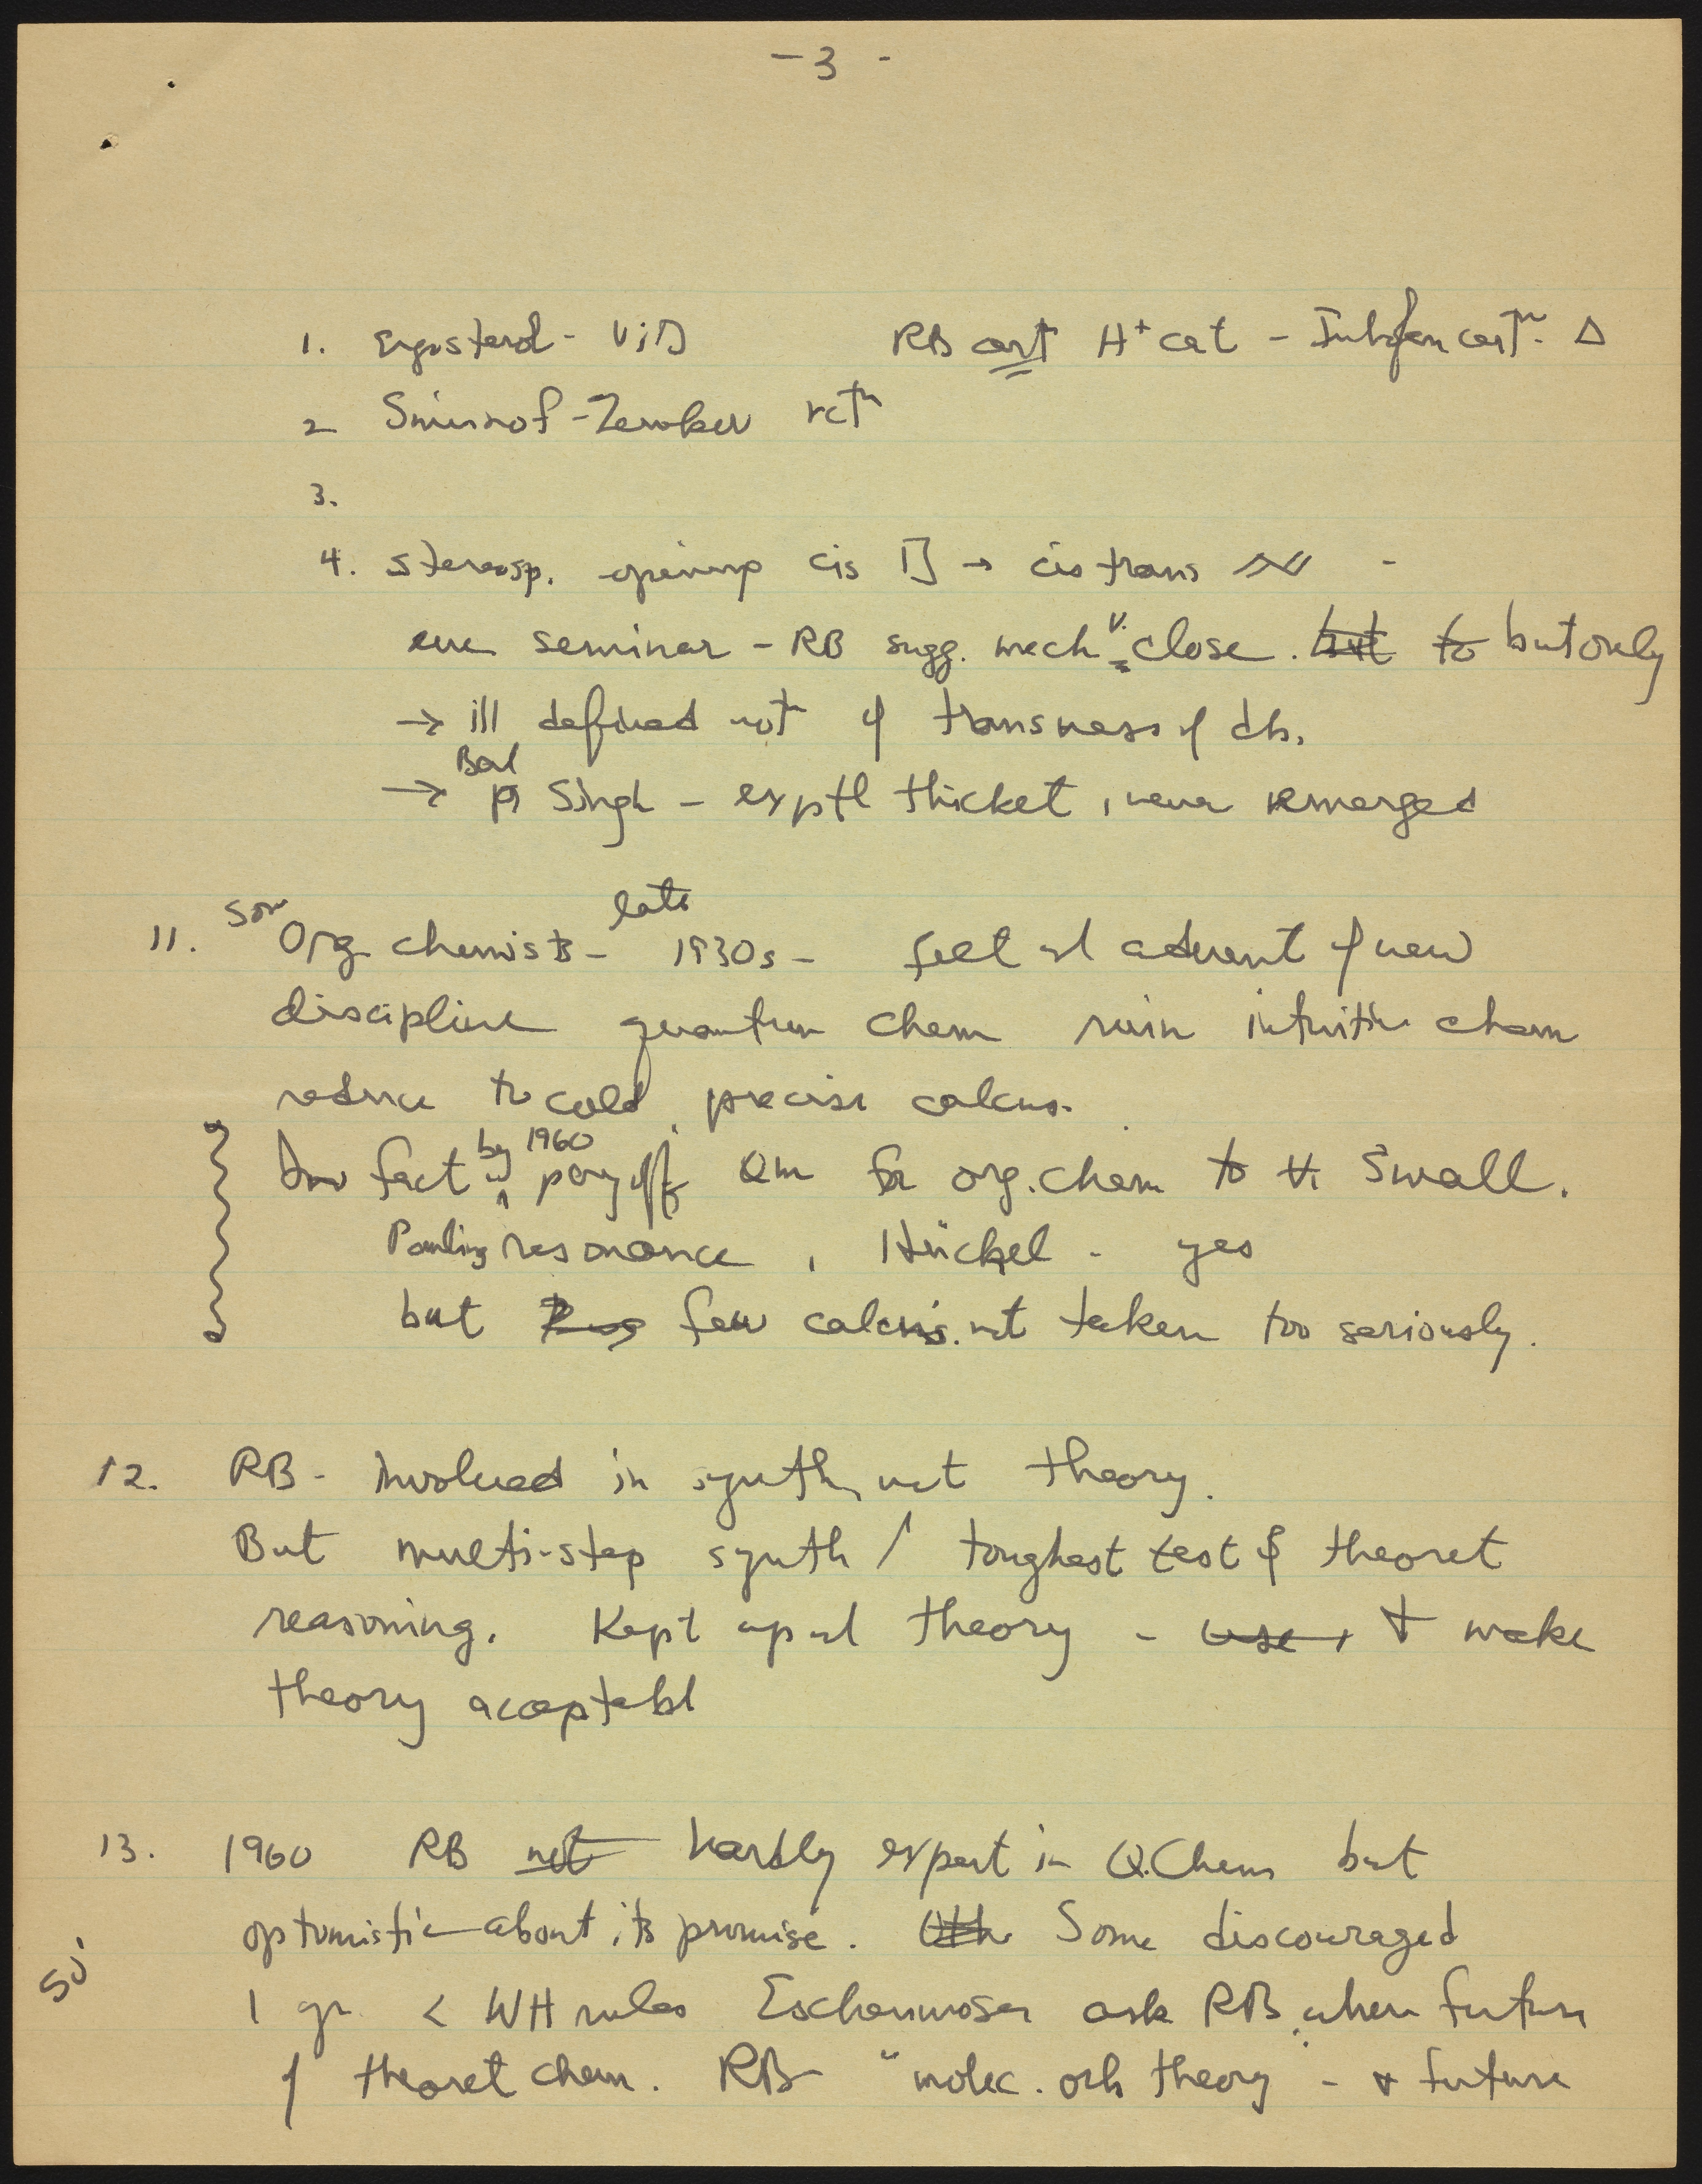 - 3 -
1. Ergosterol - Vi D RB H+ cat - Δ
2 Smirnof - Zamoker rctn
3.
4. stereosp. opening cis → cis trans -
one seminar - RB sugg. mech v. close. but to but only
→ ill defined not of transness of db.
→ Bal P Singh - exptl thicket, never emerged
11. Som Org chemists - late 1930s - felt advent of new
discipline quantum chem ruin intuitive chem
reduce to cold, precise calcns.
In fact by 1960 payoff QM for org. chem to small.
Pauling resonance, Hückel - yes
but few calcns. not taken too seriously.
12. RB - involved in synth, not theory.
But multi-step synth / toughest test of theoret
reasoning. Kept up theory - use, + make
theory acceptabl
13. 1960 RB not hardly expert in Q.Chem but
optomistic about its promise. Oth Some discouraged
1 yr < WH rules Eschenmoser ask RB, when future
of theoret chem. RB "molec. orb theory - + future